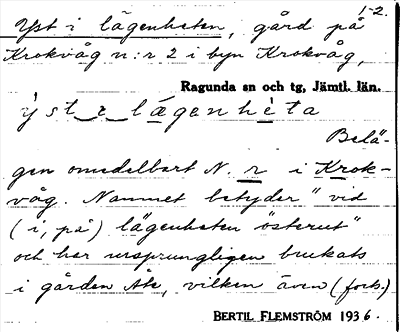 1-2.
Yst i lägenheten, gård på
Krokvåg n:r 2 i byn Krokvåg,
Ragunda sn och tg, Jämtl. län.
ỳst_e_lägenhèta
Belä-
gen omedelbart N. r i Krok-
våg. Namnet betyder "vid
(i, på) lägenheten österut"
och har ursprungligen brukats
i gården Åke, vilken även (forts.)
BERTIL FLEMSTRÖM 1936.